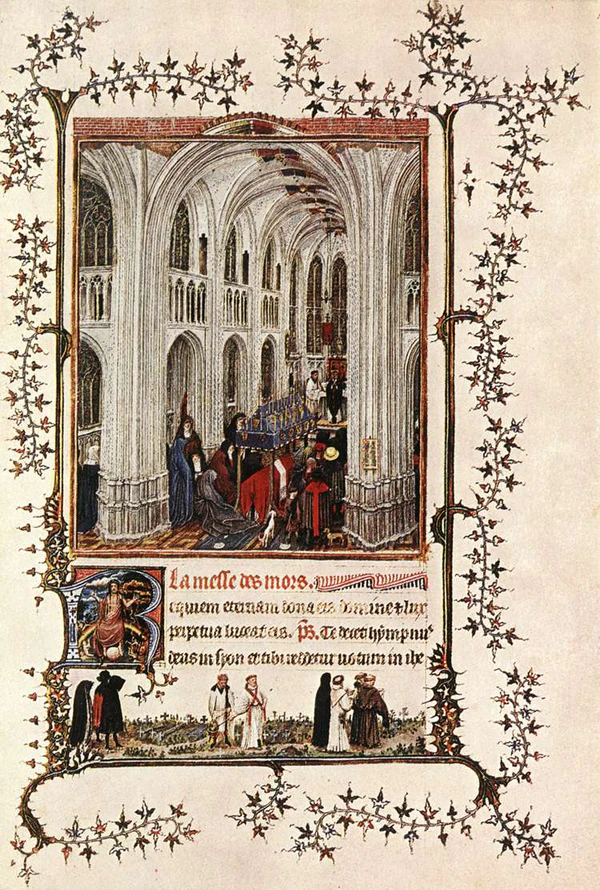 La messe des mors.
Requiem eternam dona eis domine & lux
perpetua luceat eis. Ps. Te decet hympnus
deus in syon et tibi reddetur uotum in ihe